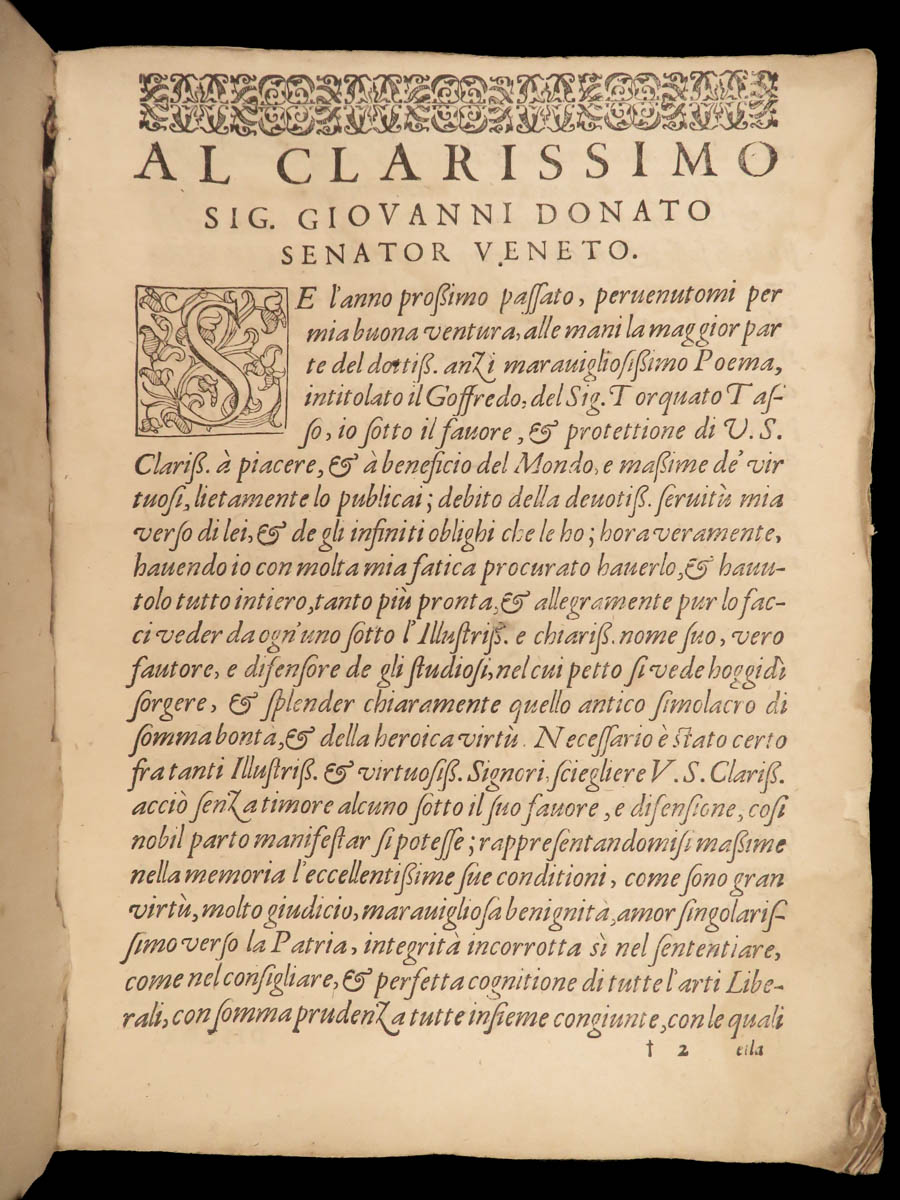 AL CLARISSIMO
SIG. GIOVANNI DONATO
SENATOR VENETO.
SE l'anno proßimo paſſato, peruenutomi per
mia buona ventura, alle mani la maggior par
te del dottiß. anzi marauigliosißimo Poema,
intitolato il Goffredo, del Sig. Torquato Taſ-
ſo, io ſotto il fauore, & protettione di V. S.
Clariß. à piacere, & à beneficio del Mondo, e maßime de' vir
tuoſi, lietamente lo publicai; debito della deuotiß. ſeruitù mia
verſo di lei, & de gli infiniti oblighi che le ho; hora veramente,
hauendo io con molta mia fatica procurato hauerlo, & hauu-
tolo tutto intiero, tanto più pronta, & allegramente pur lo fac-
ci veder da ogn'uno ſotto l'Illuſtriß. e chiariß. nome ſuo, vero
fautore, e difenſore de gli ſtudioſi, nel cui petto ſi vede hoggidì
ſorgere, & ſplender chiaramente quello antico ſimolacro di
ſomma bontà, & della heroica virtù. Neceſſario è ſtato certo
fra tanti Illuſtriß. & virtuoſiß. Signori, ſciegliere V. S. Clariß.
acciò ſenza timore alcuno ſotto il ſuo fauore, e difenſione, coſi
nobil parto manifeſtar ſi poteſſe; rappreſentandomiſi maßime
nella memoria l'eccellentißime ſue conditioni, come ſono gran
virtù, molto giudicio, marauiglioſa benignità, amor ſingolariſ-
ſimo verſo la Patria, integrità incorrotta sì nel ſententiare,
come nel conſigliare, & perfetta cognitione di tutte l'arti Libe-
rali, con ſomma prudenza tutte inſieme congiunte, con le quali
† 2 ella